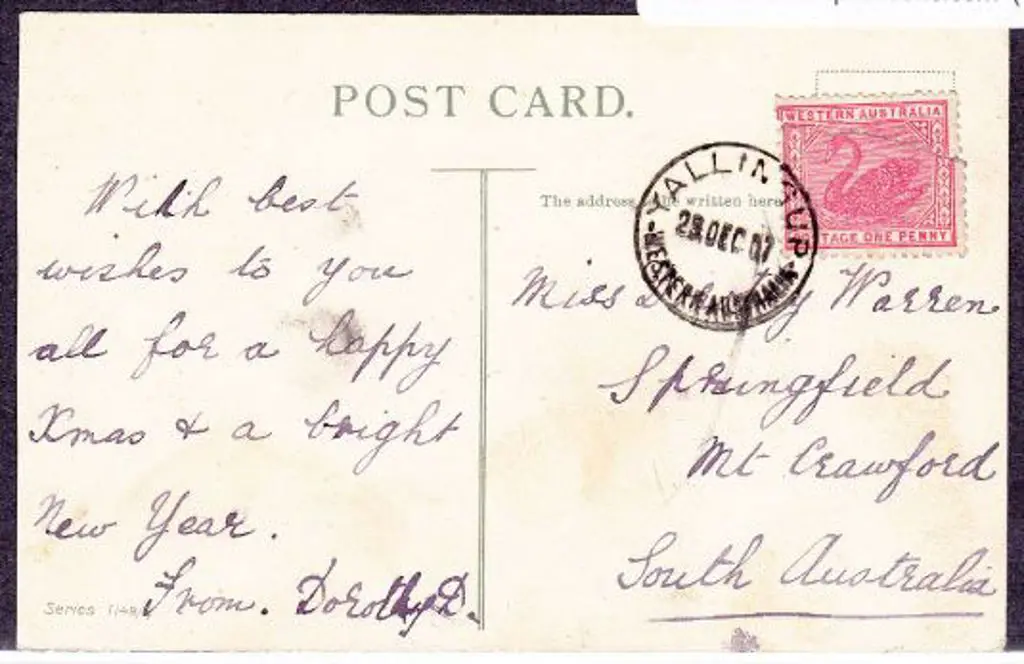 POST CARD.
With best
wishes to you
all for a happy
Xmas & a bright
New Year.
From. Dorothy D.
Series
The address be written here
WESTERN AUSTRALIA
TAGE ONE PENNY
YALLINGUP
DEC 07
WESTERN AUSTRALIA
Miss Warren
Springfield
Mt Crawford
South Australia